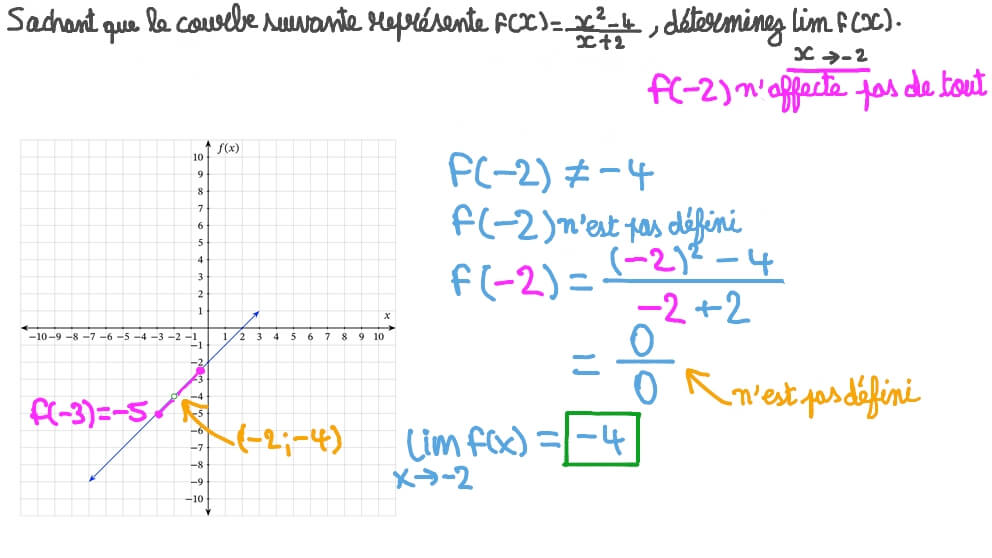 Sachant que la courbe suivante représente f(x) = \frac{x²-4}{x+2}, déterminez lim f(x).
x→-2
f(-2) n'affecte pas de tout
f(x)
10
9
8
7
6
5
4
3
2
1
x
-10 -9 -8 -7 -6 -5 -4 -3 -2 -1 1 2 3 4 5 6 7 8 9 10
-1
-2
-3
-4
-5
-6
-7
-8
-9
-10
f(-3)=-5
(-2;-4)
f(-2) ≠ -4
f(-2) n'est pas défini
f(-2) = \frac{(-2)² - 4}{-2+2}
= \frac{0}{0}
n'est pas défini
lim f(x) = -4
x→-2